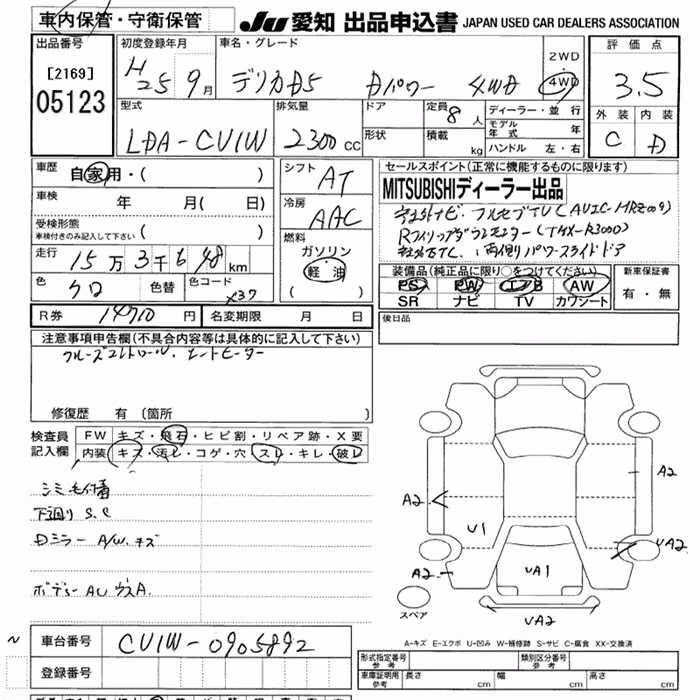 車内保管・守衛保管
JU 愛知 出品申込書 JAPAN USED CAR DEALERS ASSOCIATION
出品番号
[2169]
05123
初度登録年月
H25 9月
車名・グレード
デリカD5 Dパワー 4WD
2WD
・
4WD
評価点
3.5
外装 内装
C D
型式
LDA-CV1W
排気量
2300cc
ドア
形状
定員 8人
積載 kg
ディーラー・並行
モデル年式 年
ハンドル 左・右
車歴
自家用・( )
車検 年 月( 日)
受検形態
車検付きのみ記入して下さい ( )
走行 15万3千648km
色 クロ 色替 色コード X37
シフト AT
冷房 AAC
燃料
ガソリン
軽油
( )
セールスポイント(正常に機能するものに限ります)
MITSUBISHIディーラー出品
社外ナビ、フルセグTV(AVIC-MRZ009)
Rフィリップダウンモニター(TMX-R3000)
社外ETC、両側パワースライドドア
装備品(純正品に限り○をつけてください)
PS PW エアB AW
SR ナビ TV カワシート
新車保証書
有・無
R券 14710円 名変期限 月 日
後日品
注意事項申告欄(不具合内容等は具体的に記入して下さい)
クルーズコントロール、シートヒーター
修復歴 有 〔箇所 〕
検査員
記入欄
FW キズ・飛石・ヒビ割・リペア跡・X要
内装 キズ・汚レ・コゲ・穴 スレ・キレ・破レ
シミ毛付着
下廻り S.C
Dミラー A/W. キズ
ボディーAU
A2
A2
U1
A2
UA1
UA2
UA2
スペア
A-キズ E-エクボ U-凹み W-補修跡 S-サビ C-腐食 XX-交換済
車台番号 CV1W-0905892
登録番号
形式指定番号
参考
類別区分番号
参考
車庫証明用
参考
長さ cm 幅 cm 高さ cm